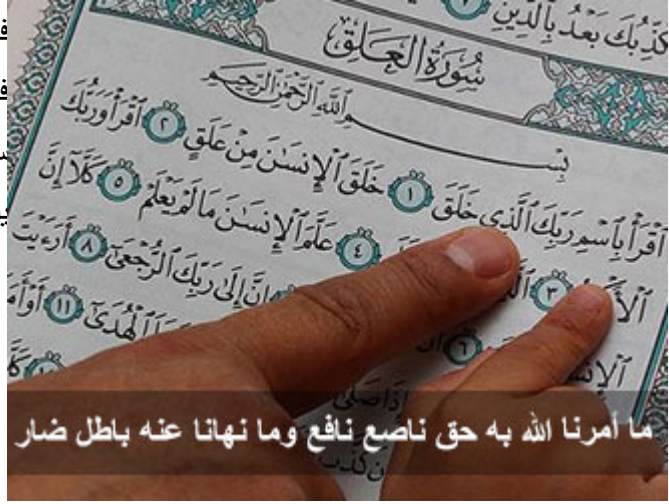 كَذِّبُكَ بَعْدُ بِٱلدِّينِ ٧
سُورَةُ العَلَقِ
بِسْمِ ٱللَّهِ ٱلرَّحْمَٰنِ ٱلرَّحِيمِ
ٱقْرَأْ بِٱسْمِ رَبِّكَ ٱلَّذِى خَلَقَ ١ خَلَقَ ٱلْإِنسَٰنَ مِنْ عَلَقٍ ٢ ٱقْرَأْ وَرَبُّكَ
٣ ٤ عَلَّمَ ٱلْإِنسَٰنَ مَا لَمْ يَعْلَمْ ٥ كَلَّآ إِنَّ
٦ إِنَّ إِلَىٰ رَبِّكَ ٱلرُّجْعَىٰٓ ٨ أَرَءَيْتَ
إِذَا صَلَّىٰٓ ٱلْهُدَىٰٓ ١١
ما أمرنا الله به حق ناصع نافع وما نهانا عنه باطل ضار